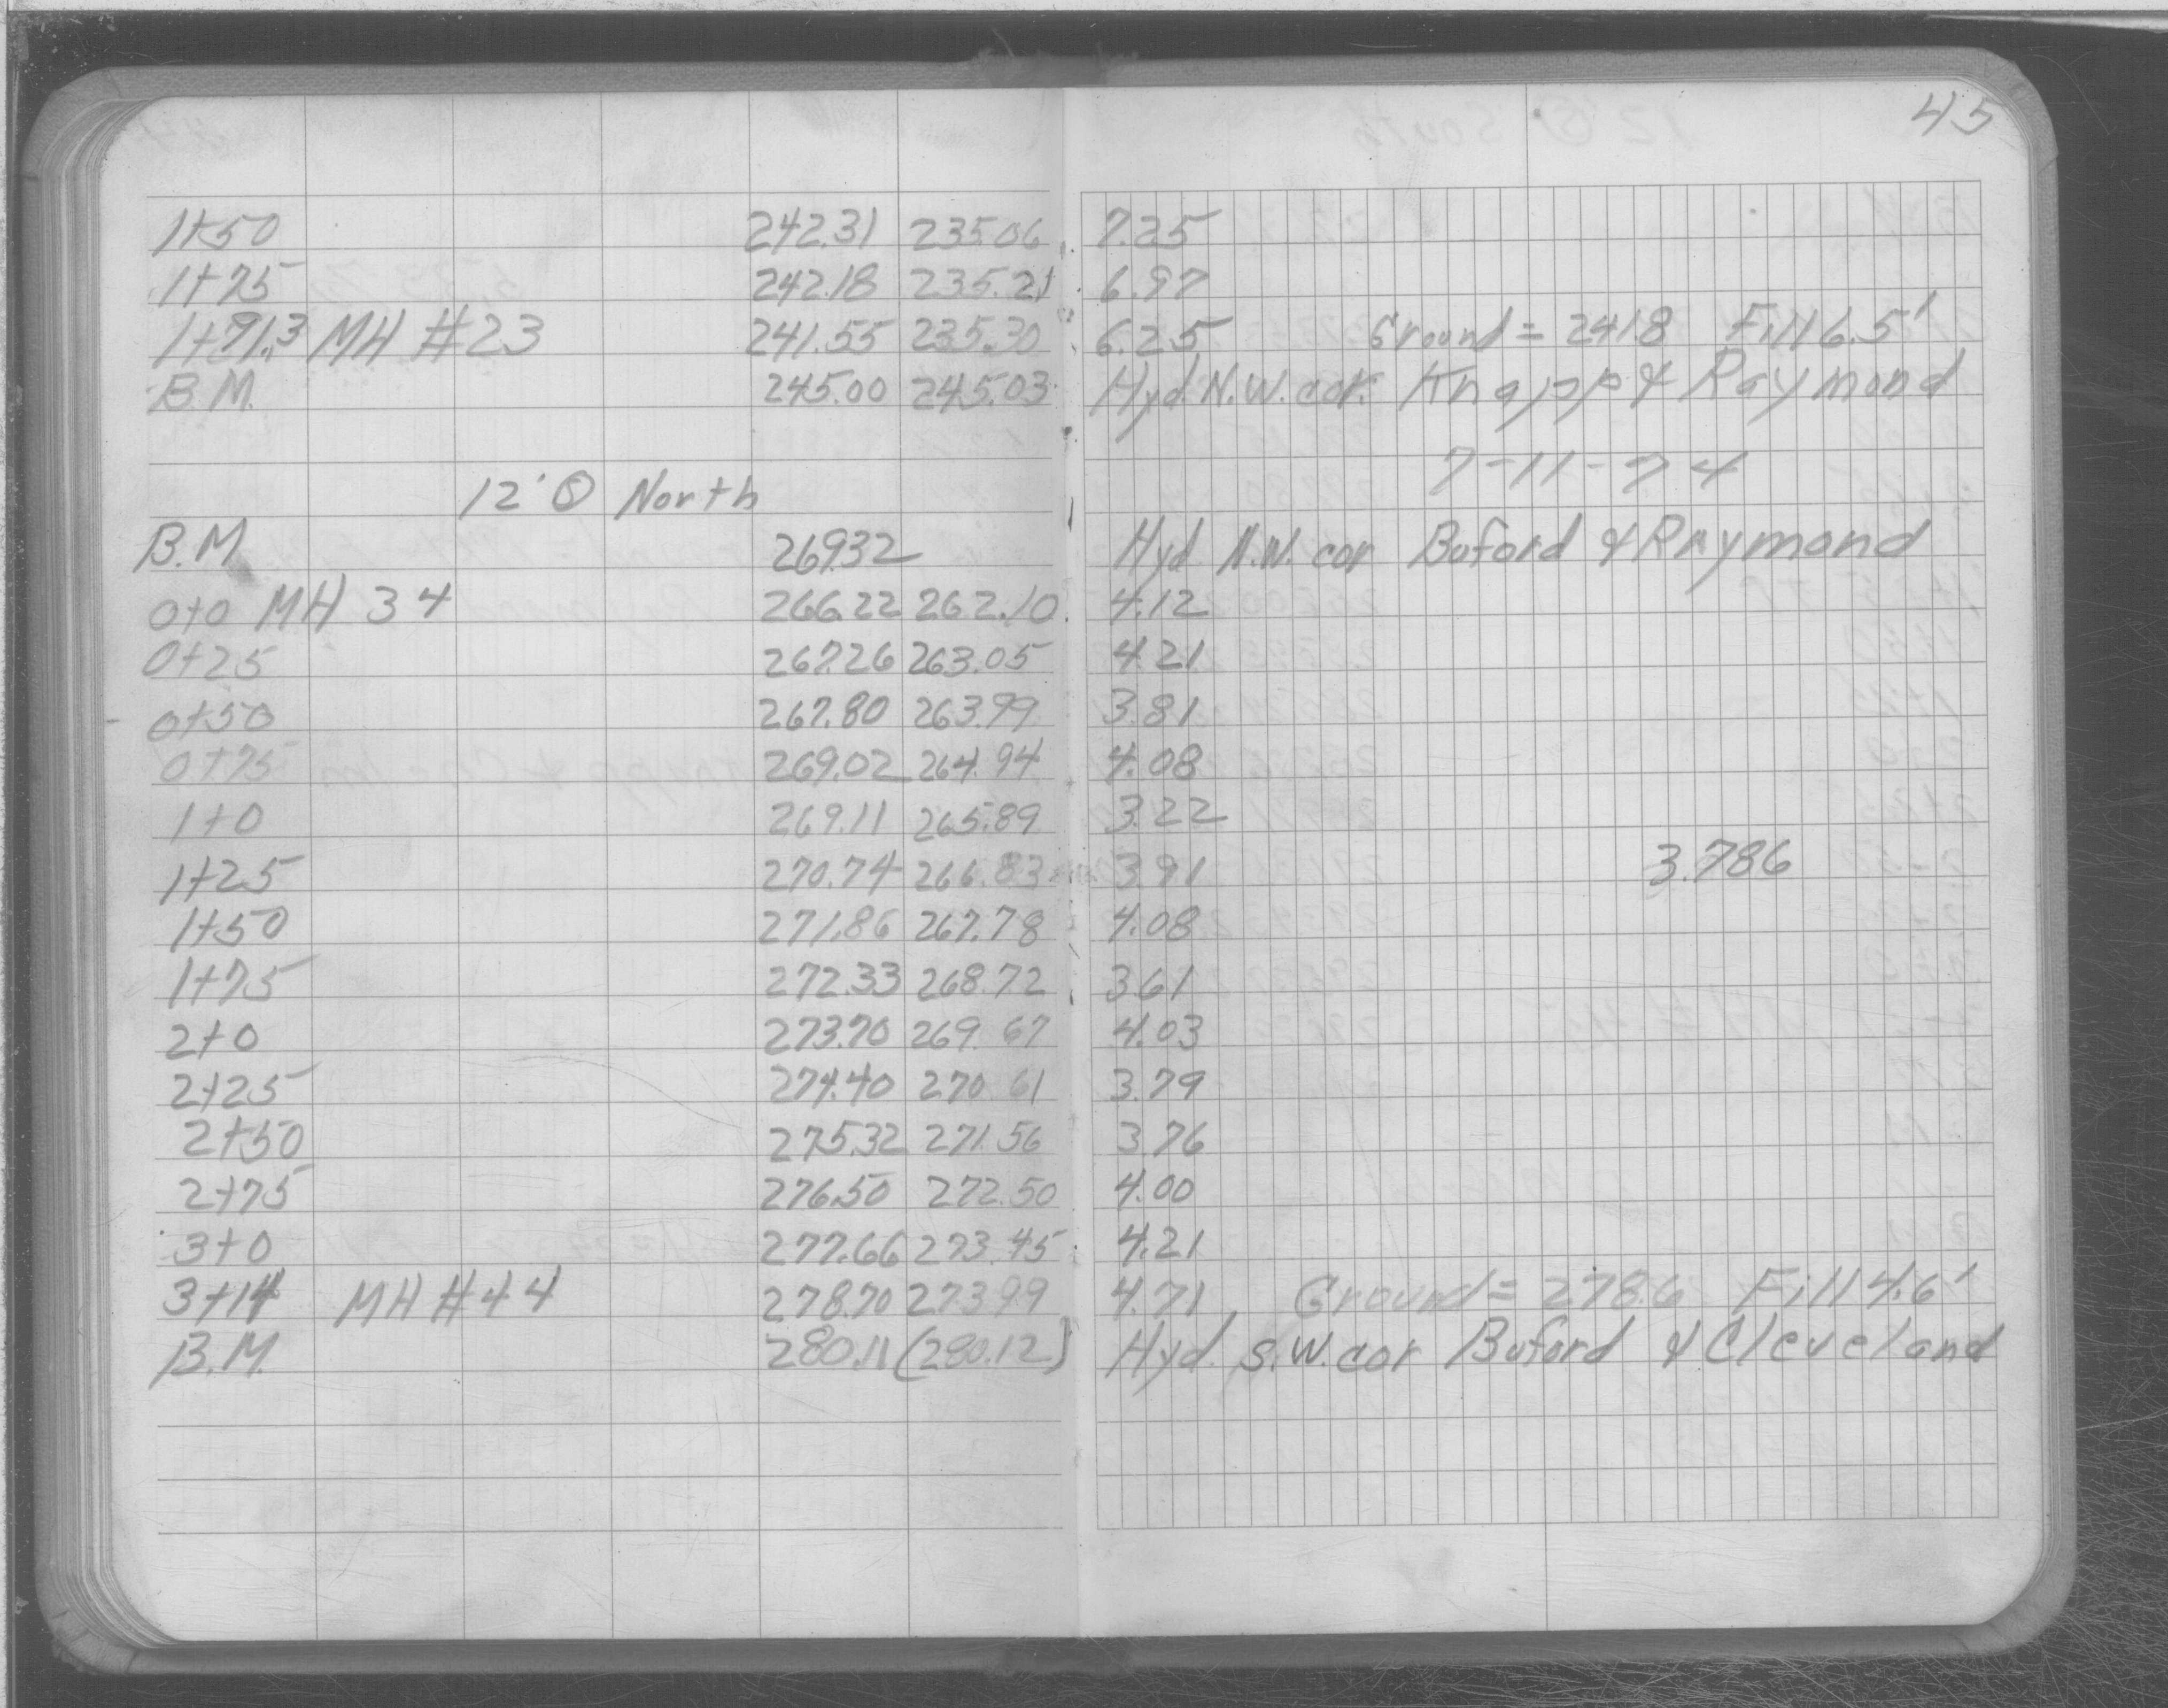 45
1+50 242.31 235.06 7.25
1+75 242.18 235.21 6.97
1+91.3 MH #23 241.55 235.30 6.25 Ground = 241.8 Fill 6.5'
B.M. 245.00 245.03 Hyd. N.W. cor. Knapp & Raymond
7-11-74
12' Ⓢ North
B.M 269.32 Hyd. N.W. cor Buford & Raymond
0+0 MH 34 266.22 262.10 4.12
0+25 267.26 263.05 4.21
0+50 267.80 263.99 3.81
0+75 269.02 264.94 4.08
1+0 269.11 265.89 3.22
1+25 270.74 266.83 3.91 3.786
1+50 271.86 267.78 4.08
1+75 272.33 268.72 3.61
2+0 273.70 269.67 4.03
2+25 274.40 270.61 3.79
2+50 275.32 271.56 3.76
2+75 276.50 272.50 4.00
3+0 277.66 273.45 4.21
3+14 MH #44 278.70 273.99 4.71 Ground = 278.6 Fill 4.6'
B.M. 280.11 (280.12) Hyd. S.W. cor Buford & Cleveland